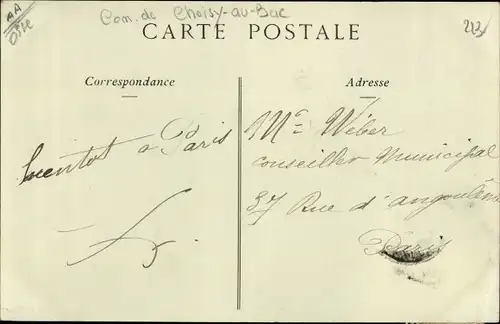 AA
Oise
Com. de Choisy-au-Bac
CARTE POSTALE
Correspondance
Adresse
bientot a Paris
Mr Wéber
Conseiller Municipal
37 Rue d'angoulême
Paris